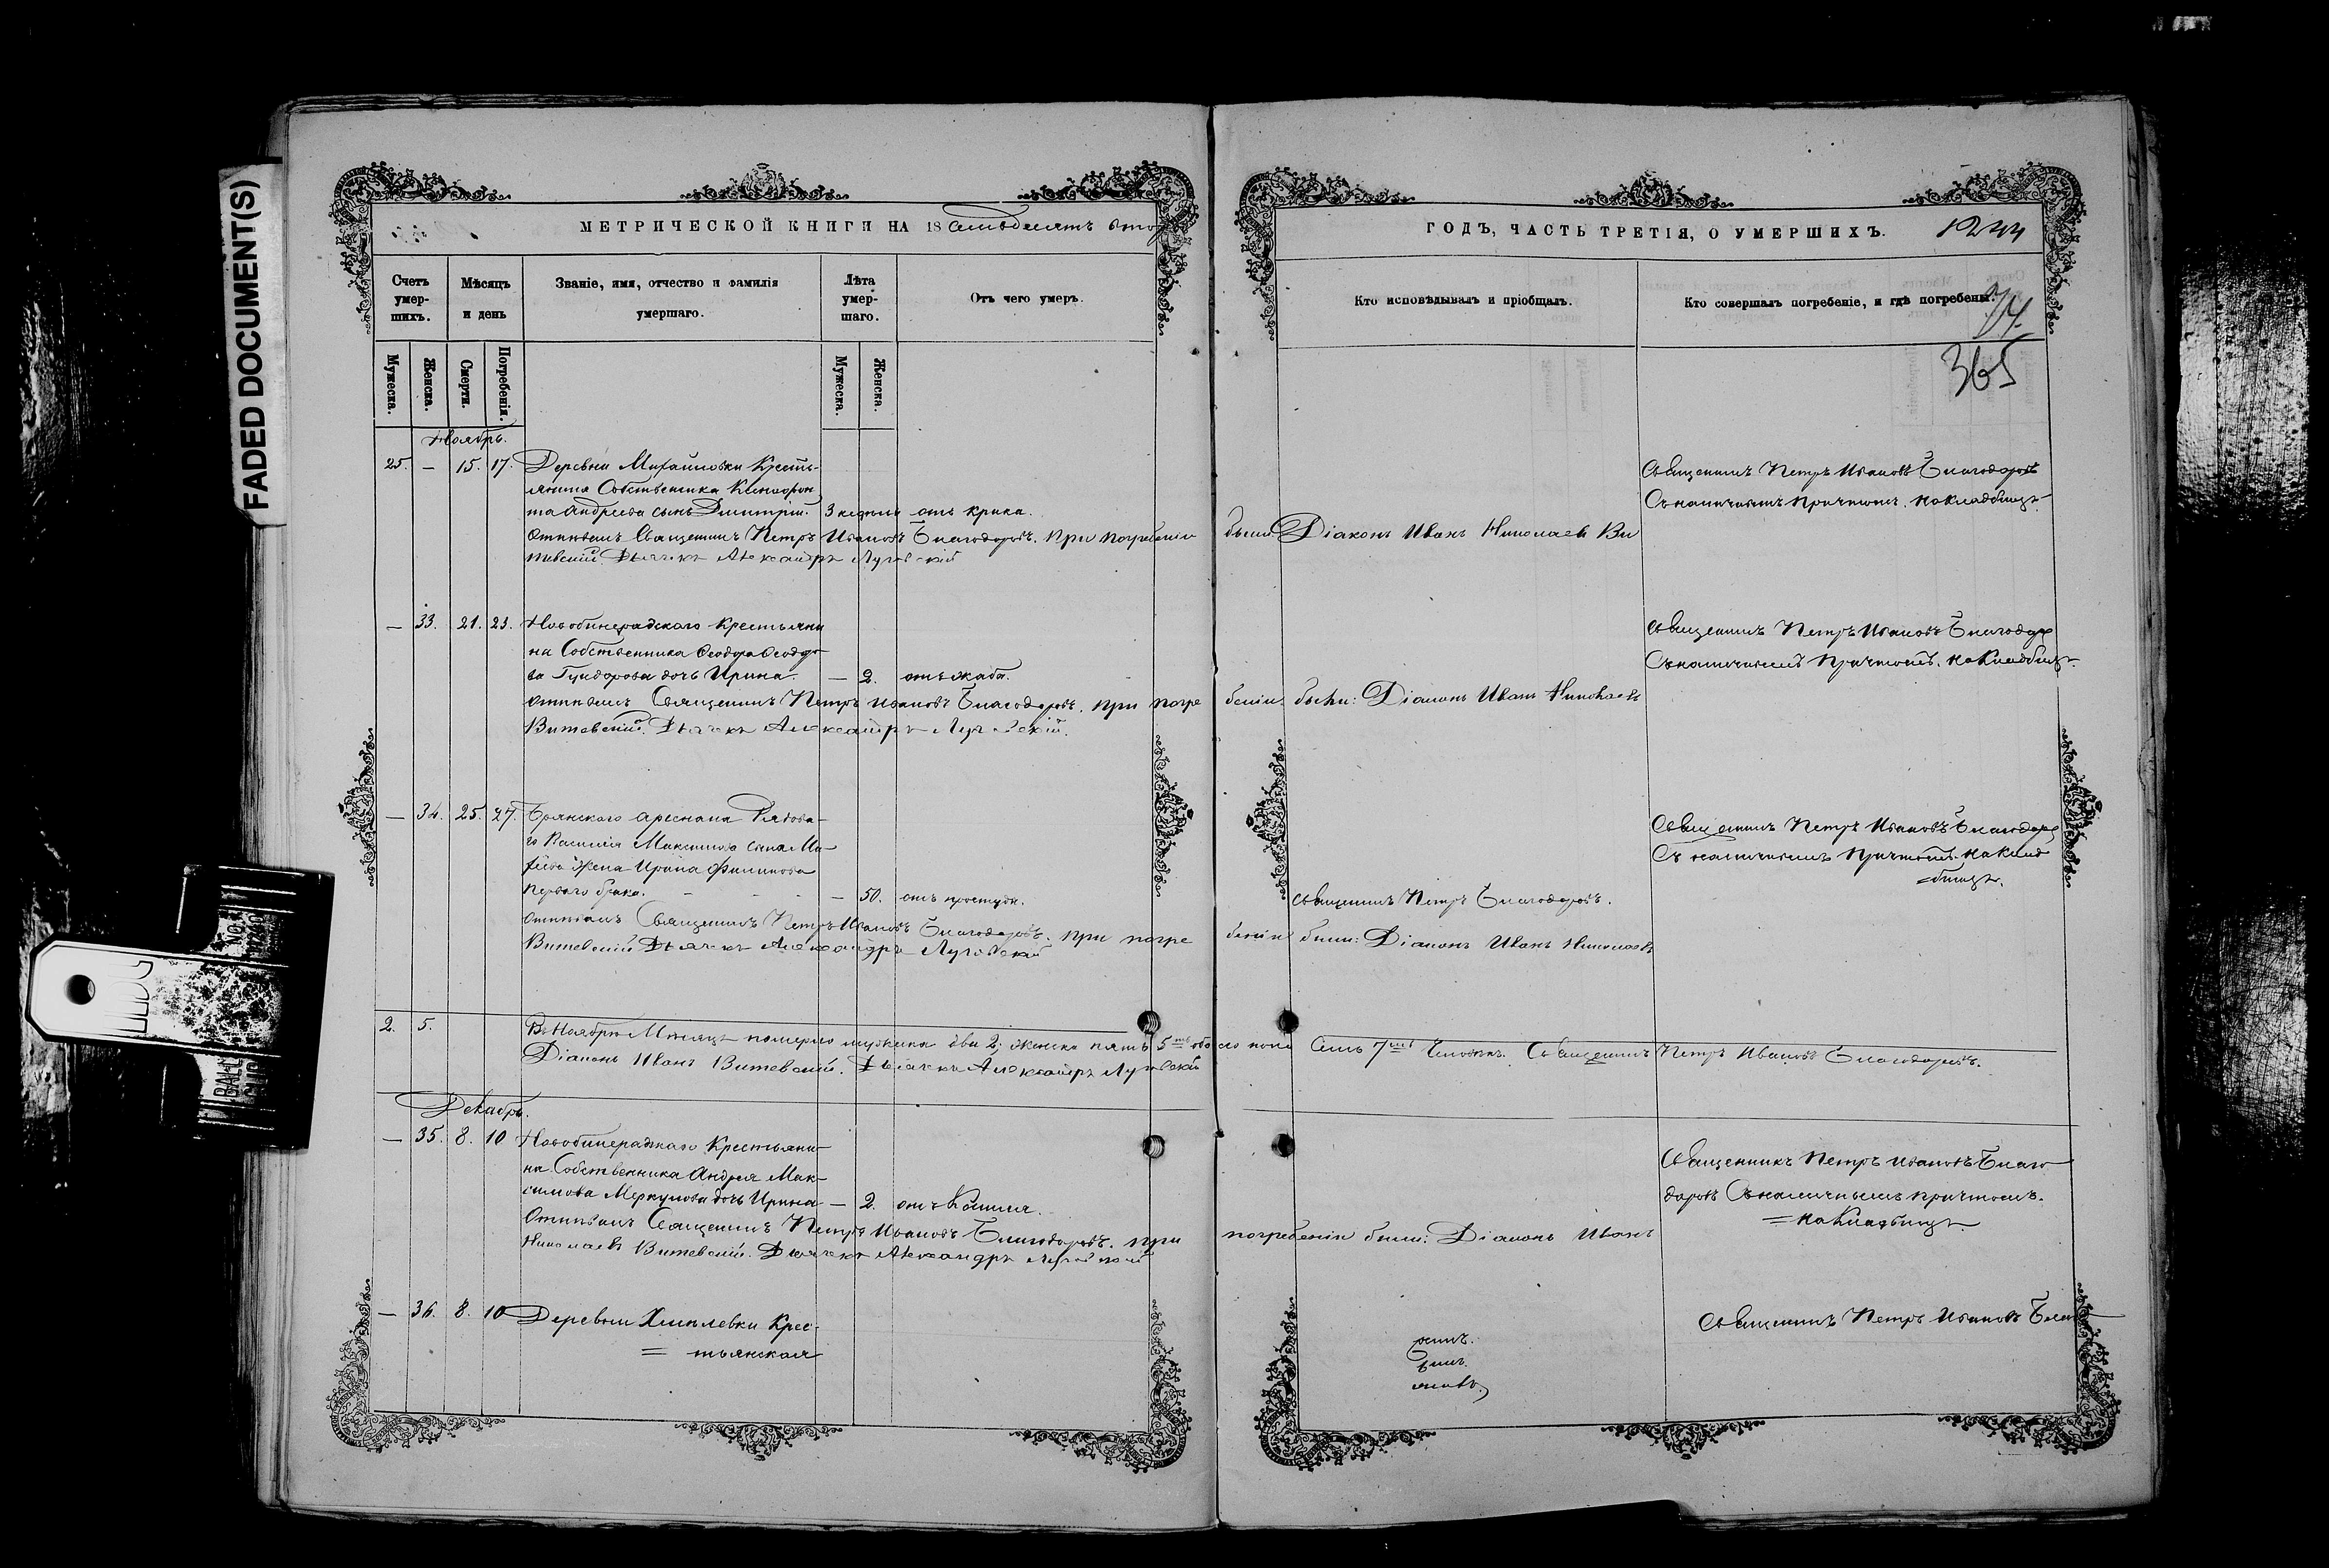 FADED DOCUMENT(S)
МЕТРИЧЕСКОЙ КНИГИ НА 18 семьдесятъ втор
Счетъ умер-шихъ.
Мѣсяцъ и день
Званіе, имя, отчество и фамилія умершаго.
Лѣта умер-шаго.
Отъ чего умеръ.
Мужеска.
Женска.
Смерти.
Погребенія.
Мужеска.
Женска.
Ноябрь.
25. — 15. 17. Деревни Михайловки Кресть-
янина Собственника Ксенофон
та Андреева сынъ Димитрій. 3 недѣли отъ крика.
Отпѣвалъ Священникъ Петръ Ивановъ Благодаровъ. при погребеніи
тевскій. Дьячекъ Александръ Луговскій
— 33. 21. 23. Крестьяни
на Собственника Ѳеодора Ѳеодоро
ва дочь Ирина. — 2. отъ жаба.
отпѣвалъ Священникъ Петръ Ивановъ Благодаровъ. при погре
Витевскій. Дьячекъ Александръ Луговскій.
— 34. 25. 27. Брянскаго арсенала Рядова-
го Василія Максимова сына Ма-
жена Ирина Филипова
перваго брака. — 50. отъ простуды.
отпѣвалъ Священникъ Петръ Ивановъ Благодаровъ. при погре
Витевскій. Дьячекъ Александръ Луговскій
2. 5. Въ Ноябрѣ Мѣсяцѣ померло мужеска два 2; женска пять 5 обо
Діаконъ Иванъ Витевскій. Дьячекъ Александръ Луговскій
Декабрь.
— 35. 8. 10 Крестьяни-
на Собственника Андрея Мак-
симова Меркулова дочь Ирина — 2. отъ кашля.
Отпѣвалъ Священникъ Петръ Ивановъ Благодаровъ. при
Николаевъ Витевскій. Дьячекъ Александръ Луговской
— 36. 8. 10 Деревни Хмелевки Крес-
= тьянская
ГОДЪ, ЧАСТЬ ТРЕТІЯ, О УМЕРШИХЪ.
1244
Кто исповѣдывалъ и пріобщалъ.
Кто совершалъ погребеніе, и гдѣ погребены.
74.
365
Священникъ Петръ Ивановъ Благодаровъ
Съ наличнымъ причтомъ. на кладбищѣ
были Діаконъ Иванъ Николаевъ Ви
Священникъ Петръ Ивановъ Благодаро
Съ наличнымъ причтомъ. на Кладбищѣ.
беніи были: Діаконъ Иванъ Николаевъ
Священникъ Петръ Ивановъ Благодаро
Съ наличнымъ причтомъ. на Клад
=бищѣ.
священникъ Петръ Благодаровъ.
беніи были: Діаконъ Иванъ Николаевъ
его пола Семь 7 Человѣкъ. Священникъ Петръ Ивановъ Благодаровъ.
Священникъ Петръ Ивановъ Благо
даровъ Съ наличнымъ причтомъ.
= на Кладбищѣ
погребеніи были: Діаконъ Иванъ
Священникъ Петръ Ивановъ Благ